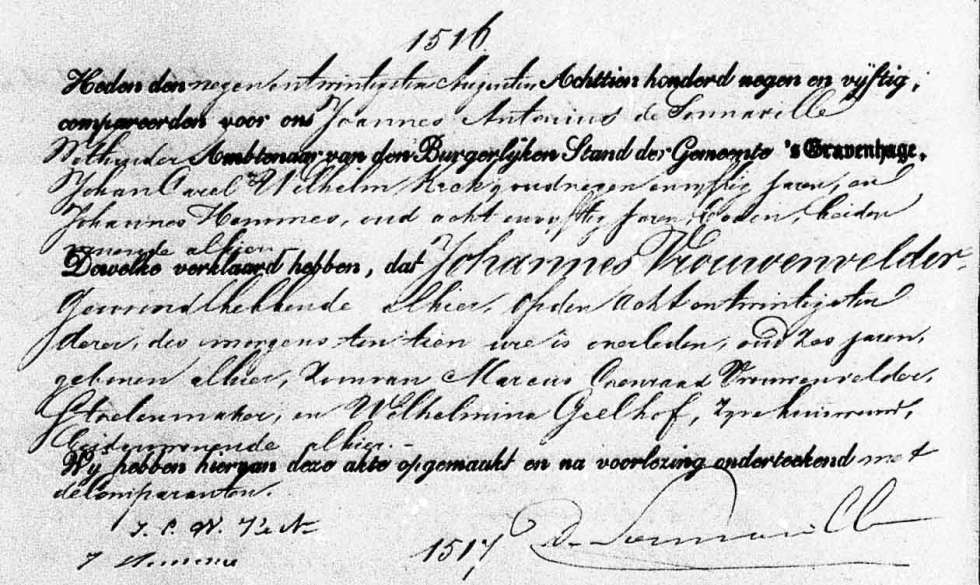 1516.
Heden den negen entwintigsten Augustus Achttien honderd negen en vijftig,
compareerden voor ons Joannes Antonius de Sonnaville
Wethouder Ambtenaar van den Burgerlijken Stand der Gemeente 's Gravenhage,
Johan Carel Wilhelm Keck, oud negen envyftig jaren, en
Johannes Hemmes, oud acht envyftig jaren, boden, beiden
wonende alhier
Dewelke verklaard hebben, dat Johannes Vrouwenvelder
Gewoond hebbende alhier, op den acht entwintigsten
dezer, des morgens ten tien ure is overleden, oud zes jaren,
geboren alhier, Zoon van Marcus Coenraad Vrouwenvelder,
Stoelenmaker, en Wilhelmina Geelhof, zyne huisvrouw,
beiden wonende alhier. -
Wij hebben hiervan deze akte opgemaakt en na voorlezing onderteekend met
de Comparanten.
J. C. W. Keck
J Hemmes
1517
De Sonnaville